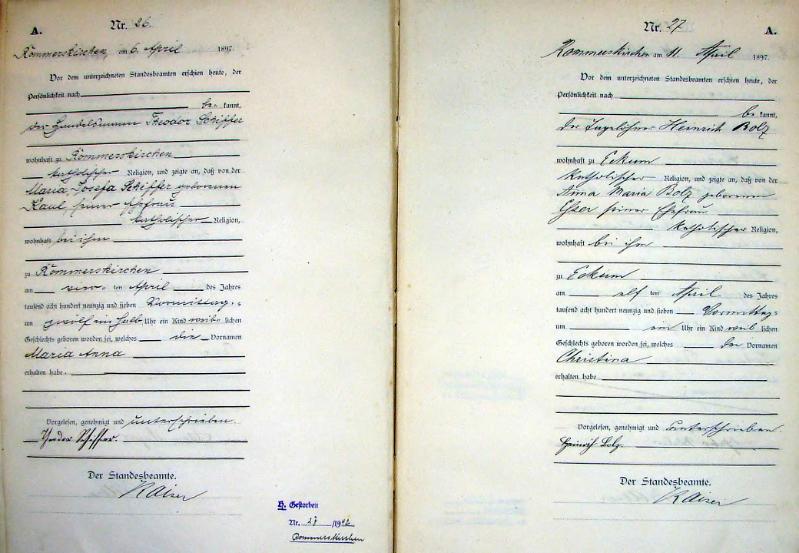 A.
Nr. 26.
Rommerskirchen, am 6. April 1897.
Vor dem unterzeichneten Standesbeamten erschien heute, der
Persönlichkeit nach
be kannt,
der Handelsmann Theodor Schiffer
wohnhaft zu Rommerskirchen
katholischer Religion, und zeigte an, daß von der
Maria Josefa Schiffer geborenen
Kaul, seiner Ehefrau
katholischer Religion,
wohnhaft bei ihm
zu Rommerskirchen
am vier ten April des Jahres
tausend acht hundert neunzig und sieben Vormittags
um zwölf ein halb Uhr ein Kind weib lichen
Geschlechts geboren worden sei, welches die Vornamen
Maria Anna
erhalten habe.
Vorgelesen, genehmigt und unterschrieben.
Theodor Schiffer.
Der Standesbeamte.
Kaiser
H. Gestorben
Nr. 27 /19
Rommerskirchen
Nr. 27
A.
Rommerskirchen am 11. April 1897.
Vor dem unterzeichneten Standesbeamten erschien heute, der
Persönlichkeit nach
be kannt,
der Tagelöhner Heinrich Bolz
wohnhaft zu Eckum
katholischer Religion, und zeigte an, daß von der
Anna Maria Bolz geborenen
Esser seiner Ehefrau
katholischer Religion,
wohnhaft bei ihm
zu Eckum
am elf ten April des Jahres
tausend acht hundert neunzig und sieben Vormittags
um ein Uhr ein Kind weib lichen
Geschlechts geboren worden sei, welches den Vornamen
Christina
erhalten habe
Vorgelesen, genehmigt und unterschrieben
Heinrich Bolz.
Der Standesbeamte.
Kaiser